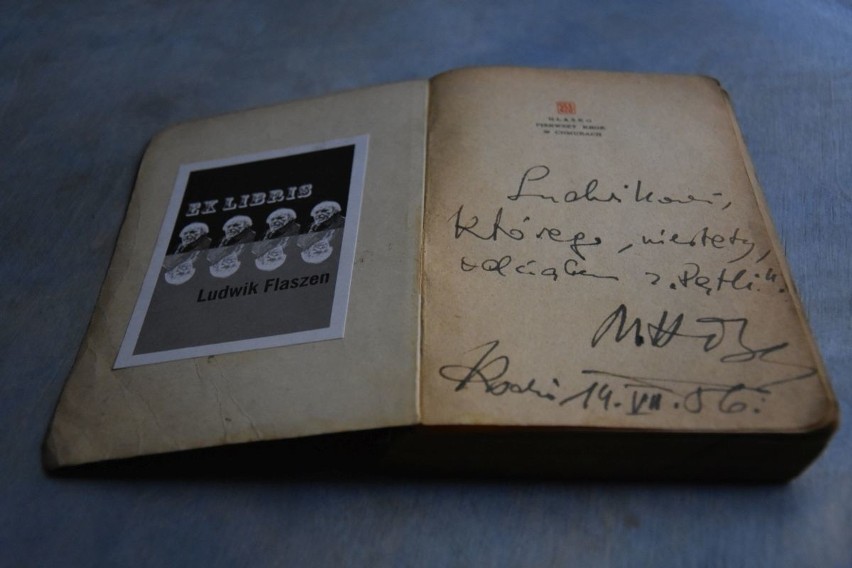 EX LIBRIS
Ludwik Flaszen
HŁASKO
PIERWSZY KROK
W CHMURACH
Ludwikowi,
którego, niestety,
odciąłem z „Pętli".
MHłasko
14.VII.56.